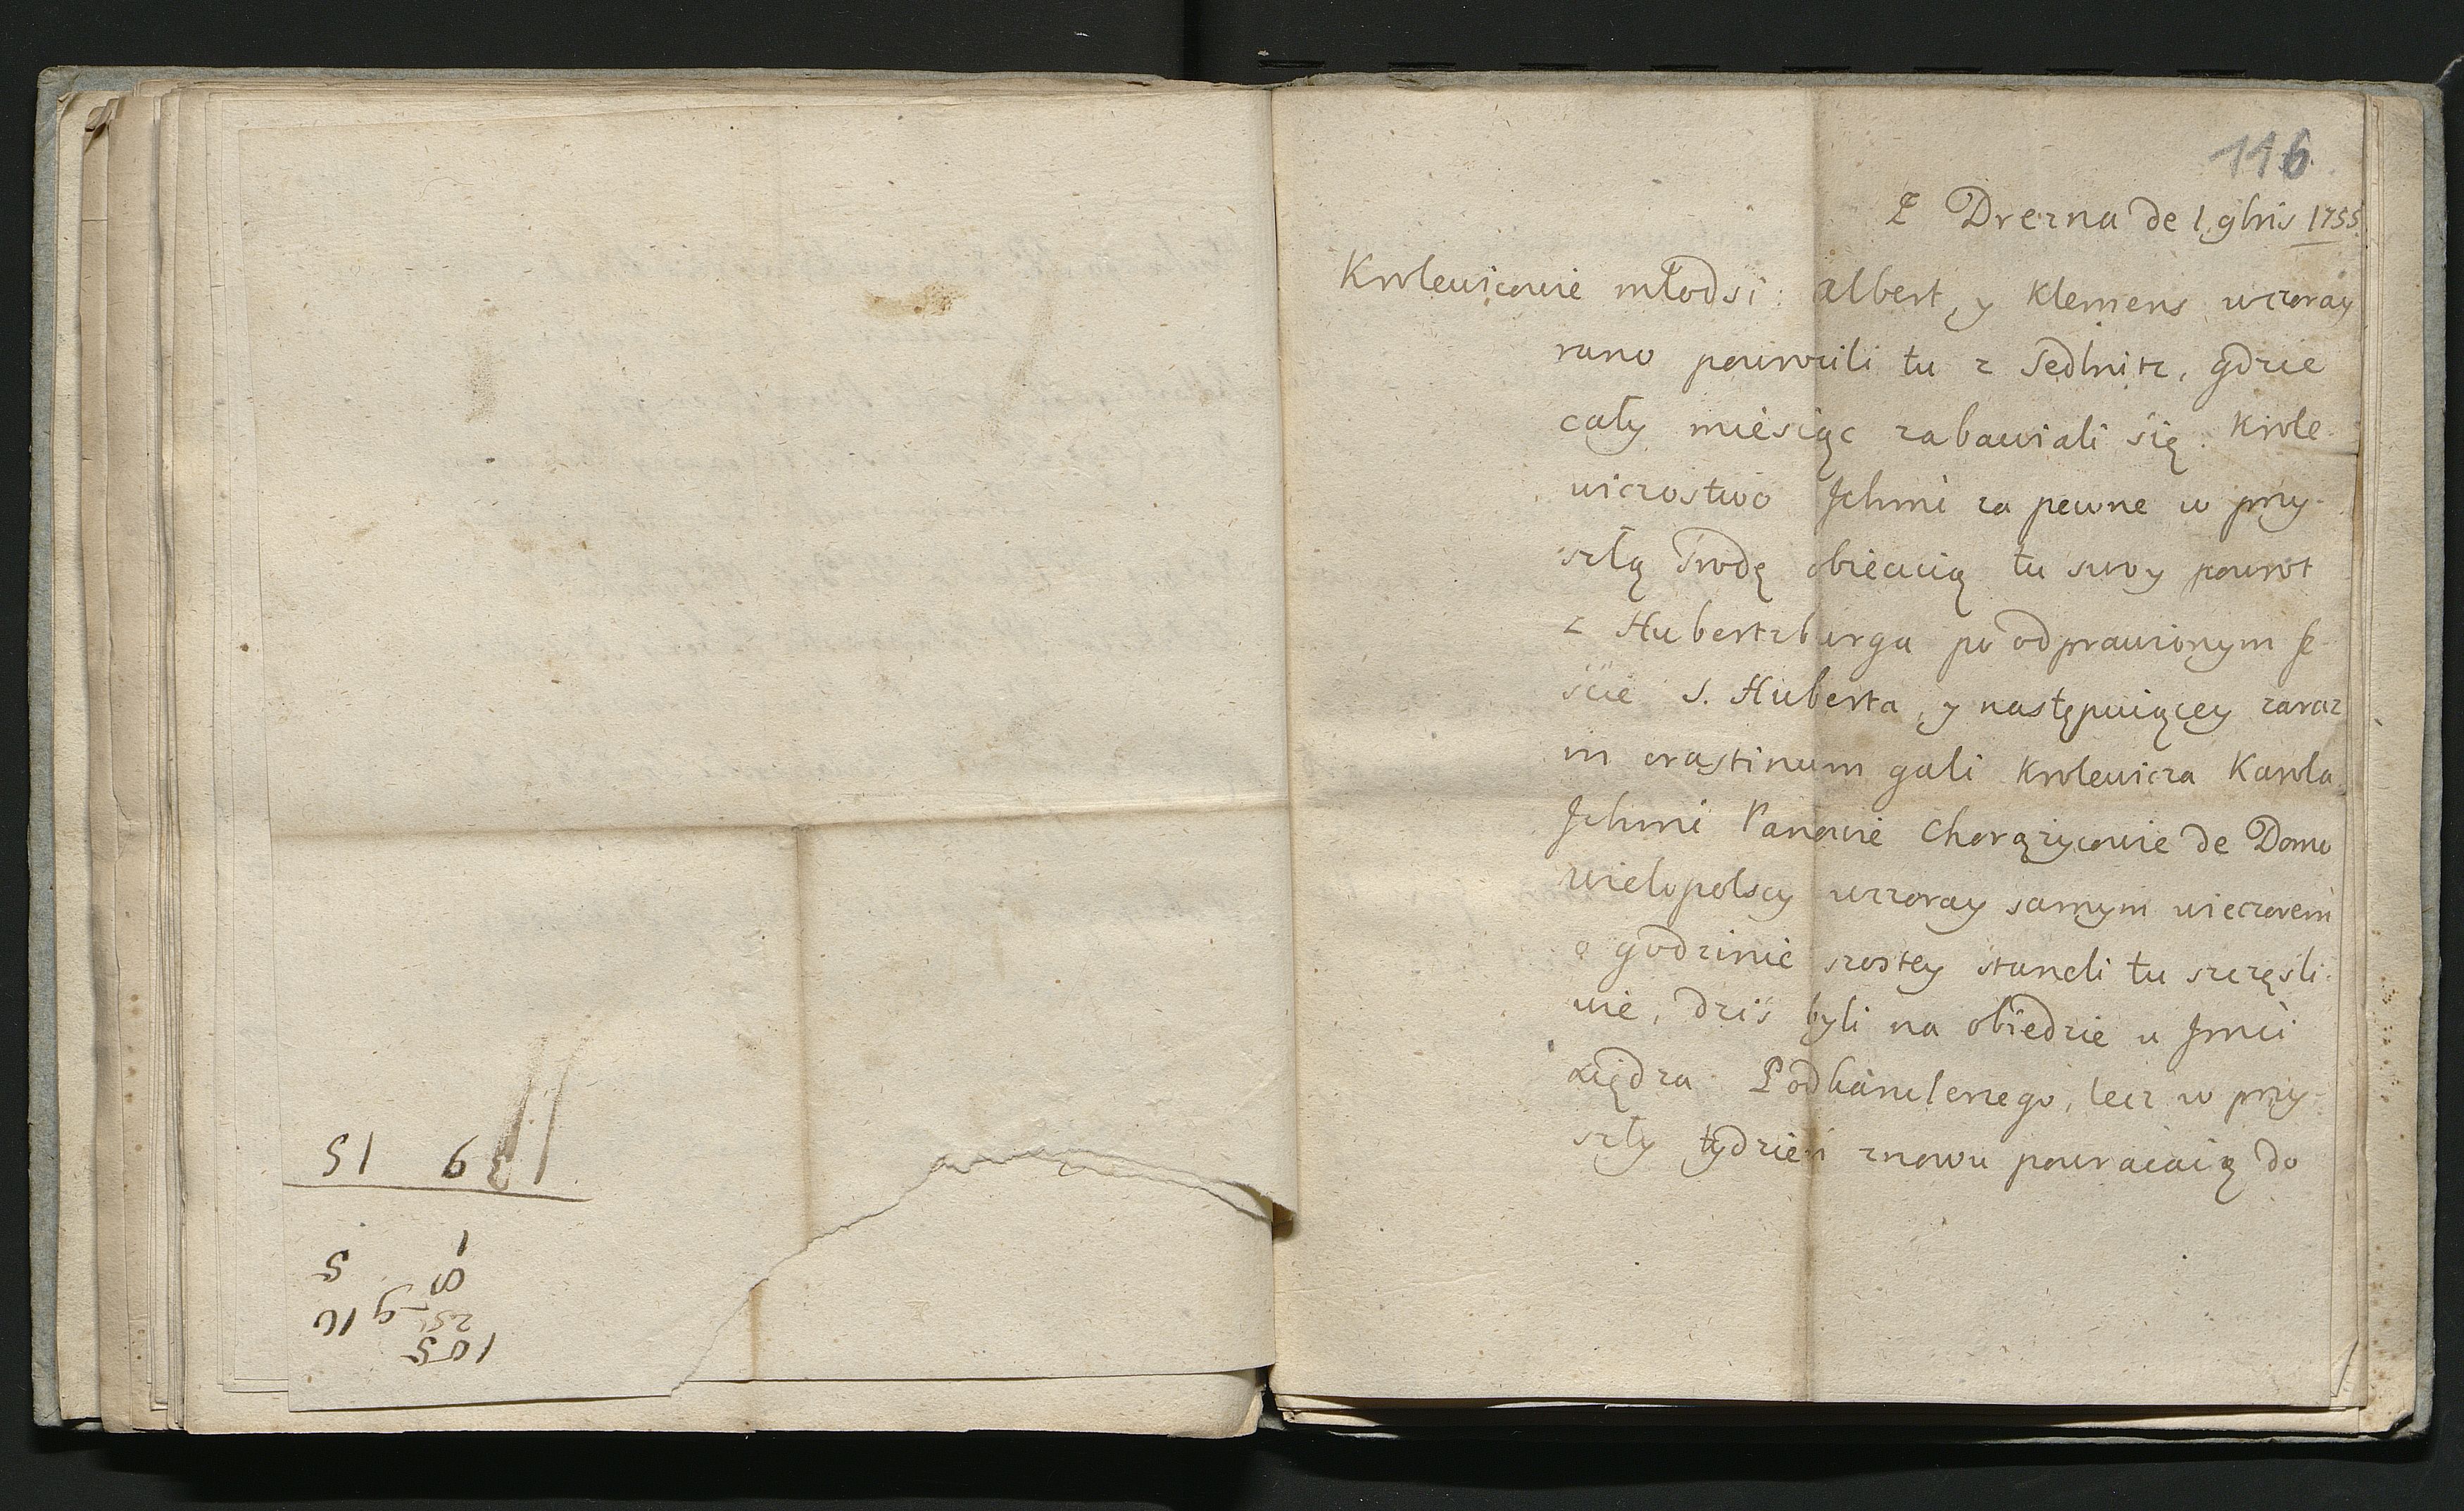 116
Z Drezna de 1 9bris 1755.
Krolewicowie młodsi: Albert, y Klemens wczoray
rano powrocili tu z Sedlnitz, gdzie
cały miesiąc zabawiali się. Krole-
wiczostwo Jchmć za pewne w przy-
szłą Srodę obiecuią tu swoy powrot
z Hubertzburga po odprawionym fe-
scie S. Huberta, y następuiącey zaraz
in crastinum gali Krolewicza Karola.
Jchmć Panowie Chorążycowie de Domo
Wielopolscy wczoray samym wieczorem
o godzinie szostey staneli tu szczęsli-
wie, dzis byli na obiedzie u Jmci
Xiędza Podkanclerzego, lecz w przy-
szły tydzień znowu powracaią do